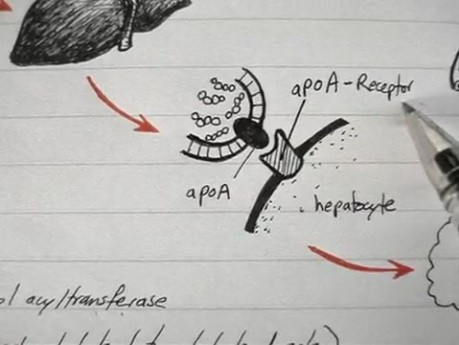 apoA-Receptor
apoA
hepatocyte
ol acyltransferase